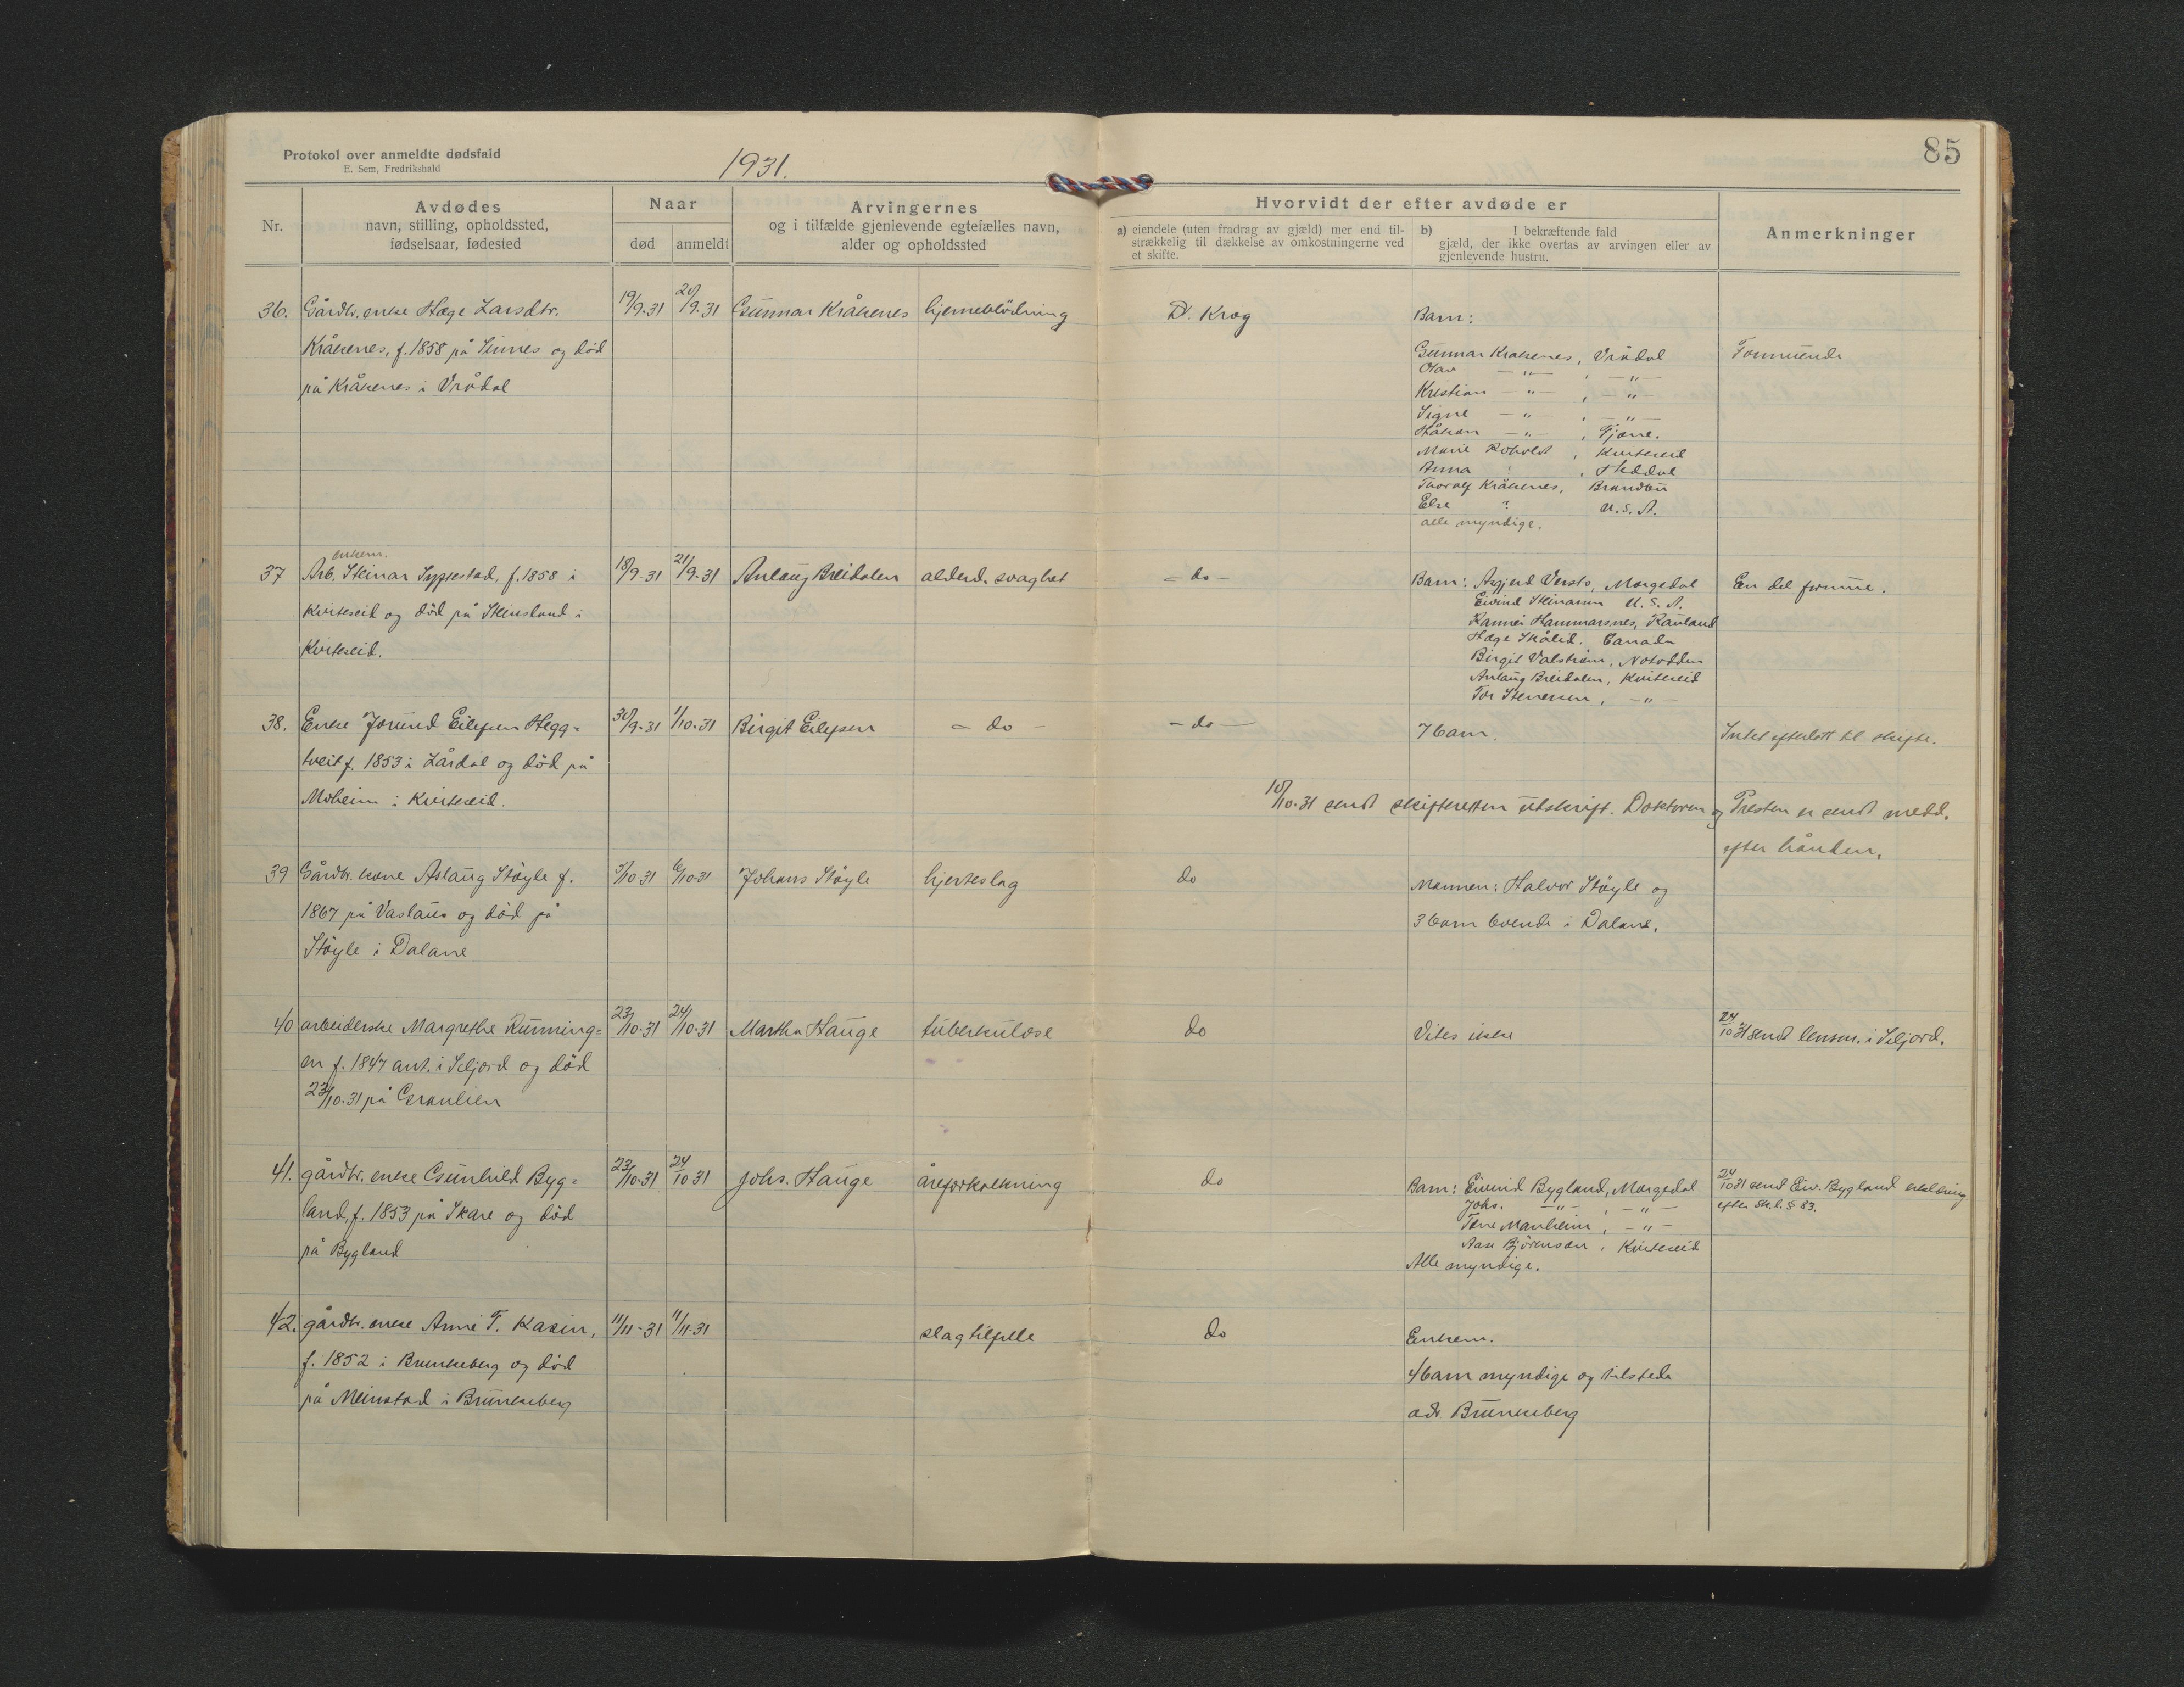 Protokol over anmeldte dødsfald
E. Sem, Fredrikshald
1931.
85
Nr.
Avdødes
navn, stilling, opholdssted,
fødselsaar, fødested
Naar
død
anmeldt
Arvingernes
og i tilfælde gjenlevende egtefælles navn,
alder og opholdssted
Hvorvidt der efter avdøde er
a) eiendele (uten fradrag av gjæld) mer end til-
strækkelig til dækkelse av omkostningerne ved
et skifte.
b) I bekræftende fald
gjæld, der ikke overtas av arvingen eller av
gjenlevende hustru.
Anmerkninger
36. Gårdbr. enke Hæge Larsdtr.
Kråkenes, f. 1858 på Sinnes og död
på Kråkenes i Vrådal
19/9-31
20/9-31
Gunnar Kråkenes
hjerneblödning
D. Krog
Barn:
Gunnar Kråkenes, Vrådal
Olav — " — , — " —
Kristian — " — , — "
Signe — " — , — " —
Håkon — " — , Fjone.
Marie Roholdt , Kviteseid
Anna , Heddal
Thoralf Kråkenes, Brandbu
Else " U.S.A.
alle myndige.
Formuende
37 Arb. enkem. Steinar Sypestad, f. 1858 i
Kviteseid og död på Skeusland i
Kviteseid.
18/9-31
21/9-31
Anlaug Breidalen
alderd. svaghet
— do —
Barn: Asgjerd Versto, Morgedal
Eivind Steinarson U.S.A.
Rannei Hammarsnes, Rauland
Hæge Skålid. Canada
Birgit Valström, Notodden
Anlaug Breidalen, Kviteseid
Tor Stenersen, — " —
En del formue.
38. Enke Jorund Eilefsen Hegg=
tveit f. 1853 i Lårdal og död på
Moheim i Kviteseid.
30/9-31
1/10-31
Birgit Eilefsen
— do —
— do —
7 barn.
Intet efterlatt til skifte.
10/10-31 sendt skifteretten utskrift. Doktoren og Presten er sendt medd.
efter hånden.
39 Gårdbr. kone Aslaug Stöyle f.
1867 på Vaslaus og död på
Stöyle i Dalane
5/10-31
6/10-31
Johans Stöyle
hjerteslag
do
Mannen: Halvor Stöyle og
3 barn boende i Dalane.
40 arbeiderske Margrethe Running=
en f. 1847 ant. i Seljord og död
23/10-31 på Granlien
23/10-31
24/10-31
Martha Hauge
tuberkulose
do
Vites ikke
24/10 31 sendt lensm. i Seljord.
41. gårdbr. enke Gunhild Byg=
land, f. 1853 på Skare og död
på Bygland
23/10-31
24/10 31
Johs. Hauge
åreforkalkning
do
Barn: Eivind Bygland, Morgedal
Johs. — " — , — " —
Tone Manheim, — " —
Aase Björnson, Kviteseid
Alle myndige.
24/10 31 sendt Eiv. Bygland erklæring
efter Sk.l. § 83.
42. gårdbr. enke Anne T. Kasin,
f. 1852 i Brunkeberg og död
på Meinstad i Brunkeberg
11/11-31
11/11-31
slagtilfelle
do
Enkem.
4 barn myndige og tilstede
adr. Brunkeberg